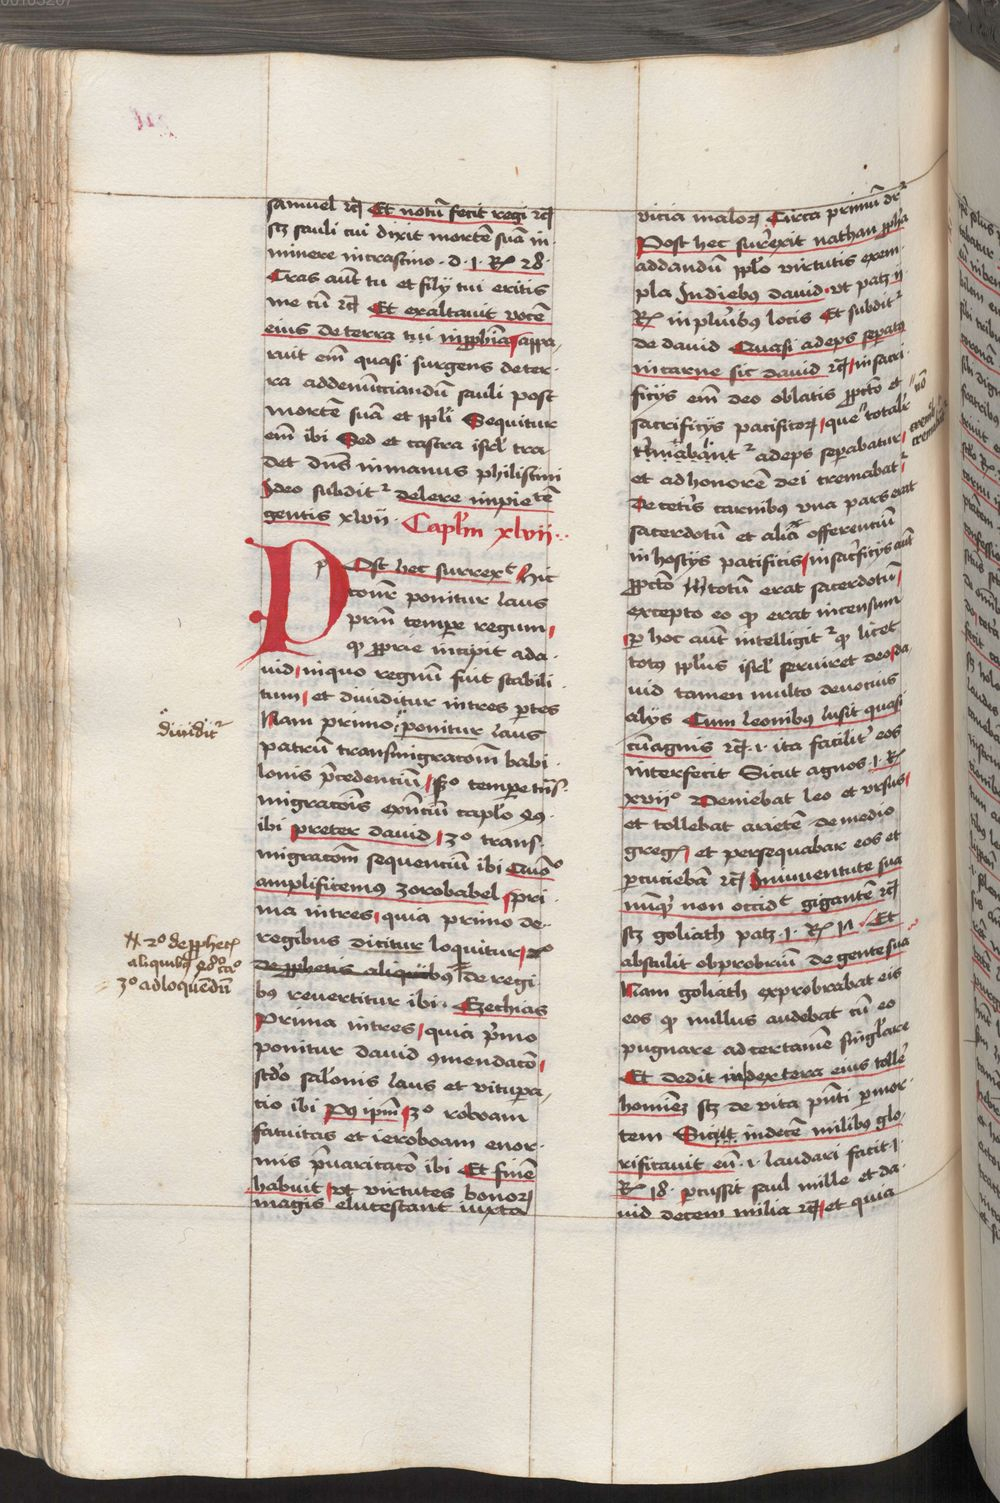 samuel rc̄ Et notū fecit regi rc̄
scz sauli cui dixit mortē suā in
minere in crastino · d · 1 · Rꝫ 28 ·
Cras aūt tu et filij tui eritis
me cū rc̄ Et exaltauit vocē
eius de terra cui in ꝓphīa appa
ruit em̄ quasi surgens de ter
ra ad denūnciandū sauli post
mortē suā et ppl̄i Sequitur
em̄ ibi Sed et castra isrl̄ tra
det dn̄s in manus philistini
Ideo subdit² delere impietē
gentis xlvii · Capl̄m xlvii
Post hec surrext Hic
ponitur laus
prim̄ tempe regum
qꝫ ꝓprie incipit a da
uid in quo regnū fuit stabili
tum et diuiditur in tres ꝑtes
Nam primo ponitur laus
patrū transmigracōm babi
lonis p̄cedenciū sꝫo tempe trās
migracōis exn̄ciū caplo 49 ·
ibi preter dauid 3o trans
migracōm sequenciū ibi Quō
amplificemus zorobabel Pri
ma in tres quia primo de
regibus dicitur loquitur 2o
de ꝓphetis aliquibꝫ de regi
bꝫ reuertitur ibi · Ezechias
Prima in tres quia p̄mo
ponitur dauid ꝯmendacō
scd̄o salōnis laus et vitupa
cio ibi Pꝰ ipm̄ 3o roboam
fatuitas et ieroboam enor
mis p̄uaritacō ibi Et finē
habuit vt virtutes bonoꝝ
magis elucescant iuxta
diuidit²
2o de ꝓphetꝭ
aliquibꝫ
3o ad loquendū
vicia maloꝝ Circa primū dr²
Post hec surrexit nathan ꝓpha
addandū ppl̄o virtutis exem
pla In diebus dauid vt patꝫ 11
Rꝫ in pluribꝫ locis Et subdit²
de dauid Quasi adeps sepatꝰ
in carne sic dauid rc̄ in sacri
ficijs em̄ deo oblatis ꝓ pctō et
sacrificijs pacificoꝝ que totalr̄
adeps separabatur
et ad honorē dei cremabat²
De cetis carnibus vna pars erat
sacerdotū et alia offerenciū
in hostijs pacificis in sacrificijs aūt
ꝓ pctō totū erat sacerdotū
excepto eo qꝫ erat incensum
ꝑ hoc aūt intelligit² qꝫ licet
totꝰ ppl̄us isrl̄ seruiret deo da
uid tamen multo deuocius
alijs Cum leonibus lusit quasi
cū agnis rc̄ · i · ita facilit̄ eos
interfecit Sicut agnos · 1 · Rꝫ
xviio Veniebat leo et vrsus
et tollebat arietē de medio
gregꝭ et persequabar eos et
ꝑcuciebā rc̄ In iuuentute sua
nūqꝫ non occidt gigantē rc̄
scz goliath patꝫ · 1 · Rꝫ 17 Et
abstulit obprobriū de gente sua
Nam goliath exprobrabat eis
eos qꝫ nullus audebat cū eo
pugnare ad certamē singlare
Et dedit in dextera eius tolle
hominē scz de vita p̄nti ꝑ mor
tem Sicut in decē milibꝫ glo
rificauit eū · i · laudari facit · 1 ·
Rꝫ 18 · ꝑcussit saul mille et da
uid decem milia rc̄ et quia
nō